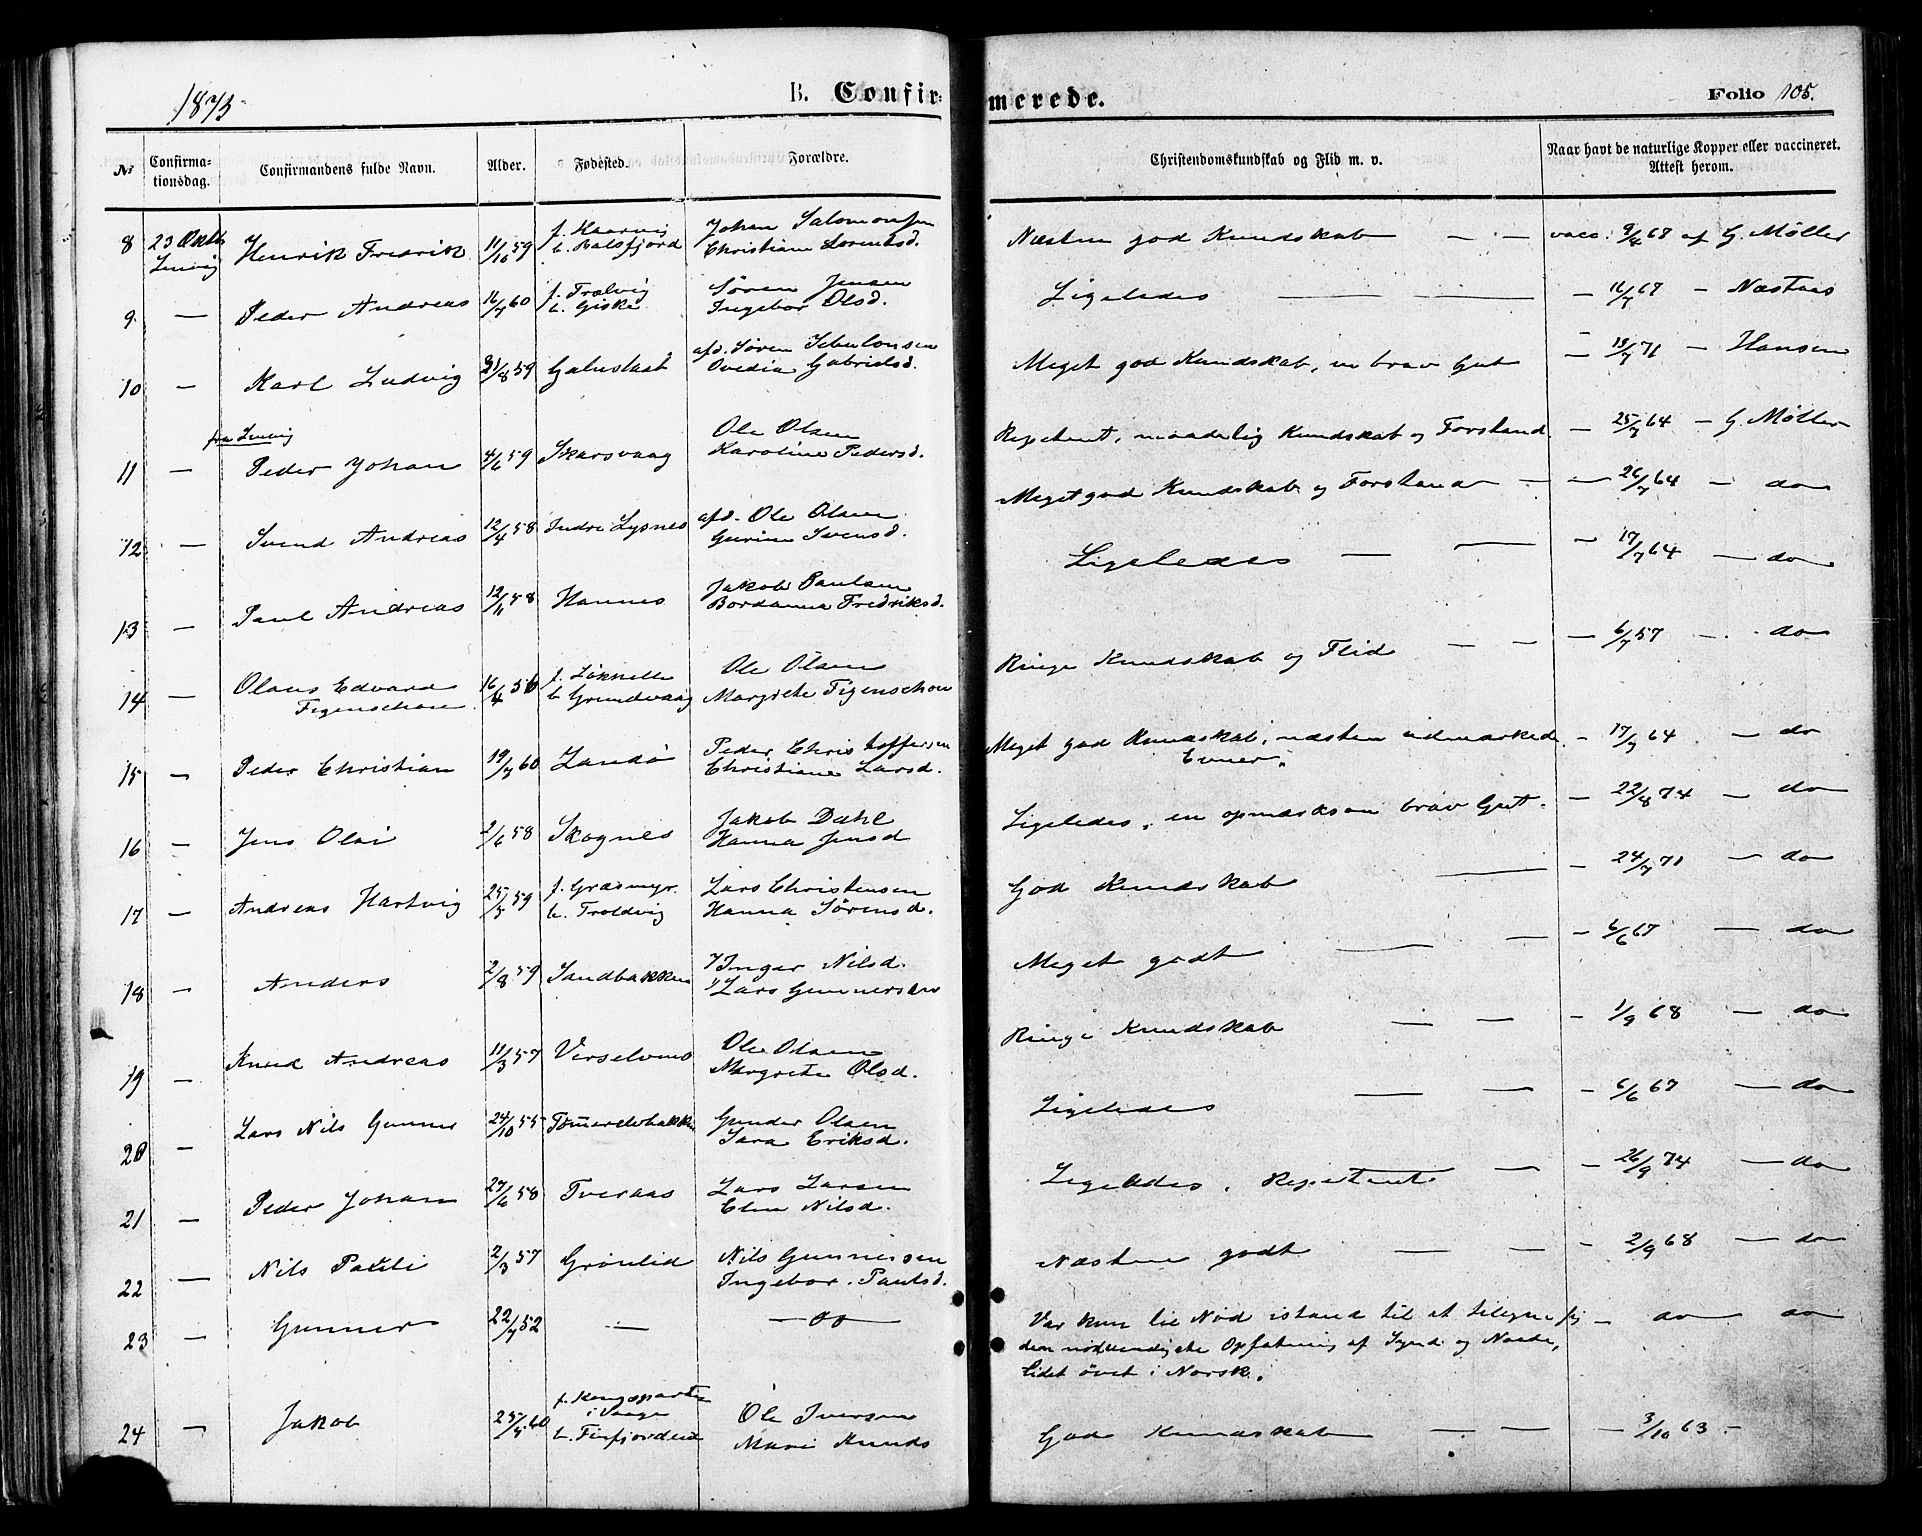 1875
B. Confirmerede.
Folio 105.
No
Confirmationsdag.
Confirmandens fulde Navn.
Alder.
Fødested.
Forældre.
Christendomskundskab og Flid m. v.
Naar havt de naturlige Kopper eller vaccineret. Attest herom.
8 23 Oktb Henrik Fredrik 11/10 59 f. Haarvig Johan Salomonsen Næsten god Kundskab — — vacc. 9/4 68 af G. Møller
Lenvig b. Balsfjord Christiane Lorentsd.
9 — Peder Andreas 16/7 60 f. Trælvig Søren Jensen Ligeledes — — — 16/7 67 — Næstaas
b. Giske Ingebor Olsd.
10 — Karl Ludvig 31/8 59 afd. Søren Sebulonsen Meget god Kundskab, en brav Gut — 19/7 71 — Hansen
Ovedia Gabrielsd.
fra Lenvig
11 — Peder Johan 4/6 59 Skarsvaag Ole Olsen Repetent, maadelig Kundskab og Forstand — 25/7 64 — G. Møller
Karoline Pedersd.
12 — Svend Andreas 12/4 58 Indre Lysnes afd. Ole Olsen Meget god Kundskab og Forstand — — 26/7 64 — do
Gurine Svensd.
13 — Paul Andreas 12/11 58 Hannes Jakob Paulsen Ligeledes — — — 17/7 64 — do
Bordanna Fredriksd.
14 — Olaus Edvard 16/4 56 f. Løknelle Ole Olsen Ringe Kundskab og Flid — — — 6/7 57 — do
Figenschou b. Grundvaag Margrete Figenschou
15 — Peder Christian 19/7 60 Sandø Peder Christoffersen Meget god Kundskab, næsten udmærkede — 17/7 64 — do
Christiane Larsd. Evner.
16 — Jens Olai 2/6 58 Skognes Jakob Dahl Ligeledes, en opmærksom brav Gut. — 22/8 74 — do
Hanna Jensd
17 — Andreas Hartvig 25/5 59 f. Græsmyr Lars Christensen God Kundskab — — 24/7 71 — do
b. Troldvig Hanna Sørensd.
18 — Anders 2/8 59 Sandbakken Inger Nilsd. Meget godt — — — 6/6 67 — do
Lars Gunnersen
19 — Knud Andreas 11/3 57 Ole Olsen Ringe Kundskab — — — 1/9 68 — do
Margrete Olsd.
20 — Lars Nils Gunner 24/10 55 Gunder Olsen Ligeledes — — — 6/6 67 — do
Sara Eriksd.
21 — Peder Johan 27/6 58 Tveraas Lars Larsen Ligeledes. Repetent — — 26/9 74 — do
Elen Nilsd.
22 — Nils Pauli 2/3 57 Grønlid Nils Gunnersen Næsten godt — — — 2/9 68 — do
Ingebor. Paulsd.
23 — Gunner 22/7 52 — — do — Var kun til Nød istand til at tilegne sig — do — do
den nødvendigste Opfatning af Synd og Naade,
lidet øvet i Norsk.
24 — Jakob 25/5 60 f. Kongsparten Ole Iversen God Kundskab — — — 3/10 63 —
i Vaage
b. Finfjordeid Mari Knuds